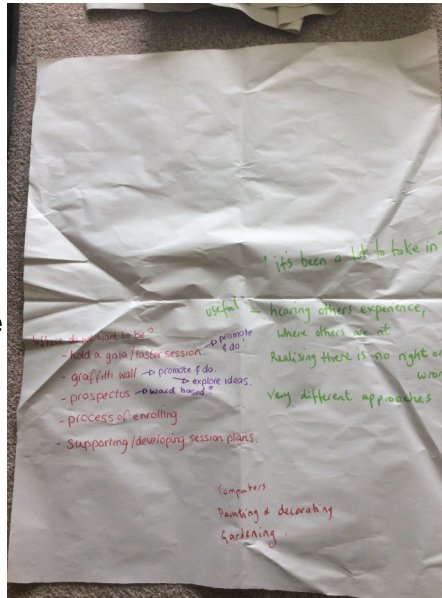 "it's been a lot to take in"
useful - hearing others experience,
where others are at
Realising there is no right or
wron
very different approaches
Where do we want to be?
- hold a gala/taster session. → promote
& do!
- graffitti wall → promote & do.
→ explore ideas.
- prospectus → ward based?
- process of enrolling
- supporting/developing session plans.
Computers
Painting & decorating
Gardening
e